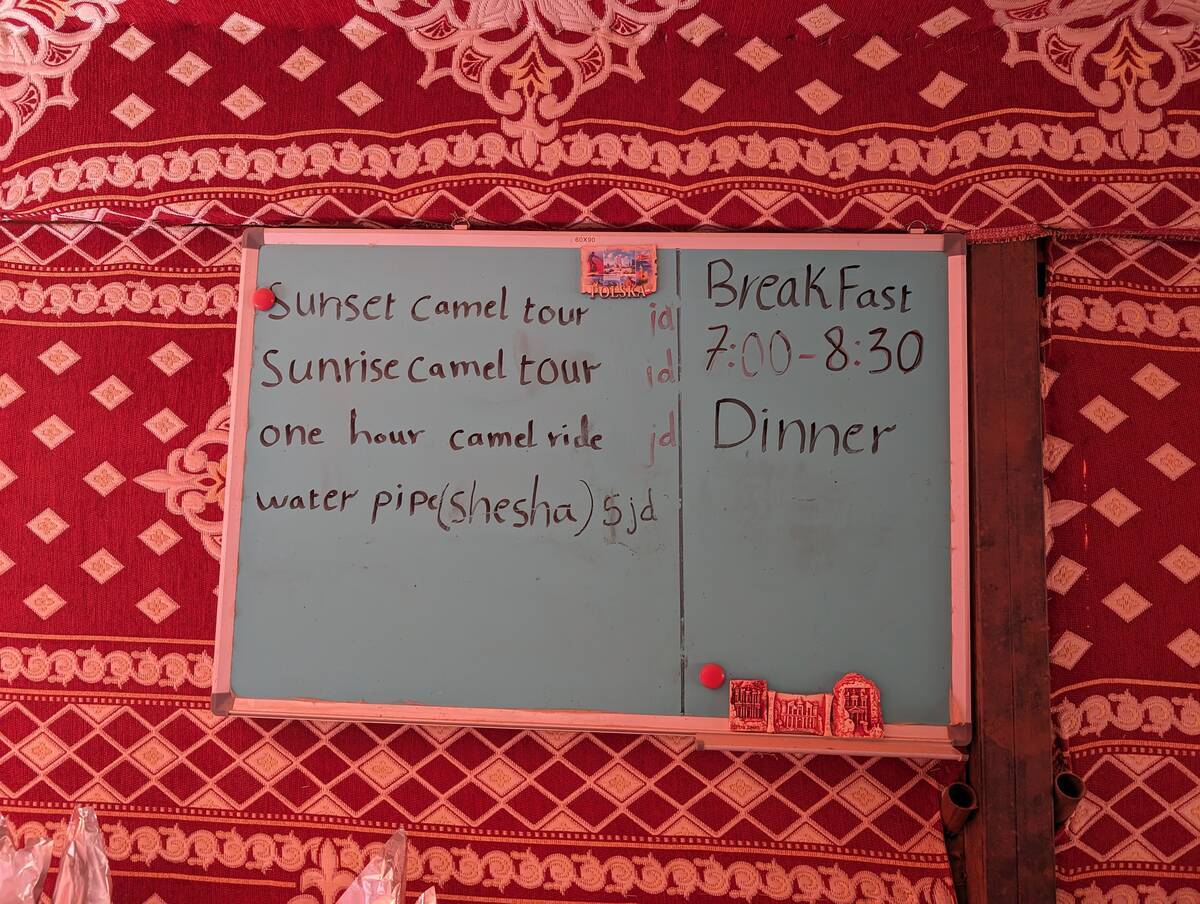 60X90
POLSKA
Sunset camel tour jd
Sunrise camel tour jd
one hour camel ride jd
water pipe (shesha) 5jd
BreakFast
7:00-8:30
Dinner